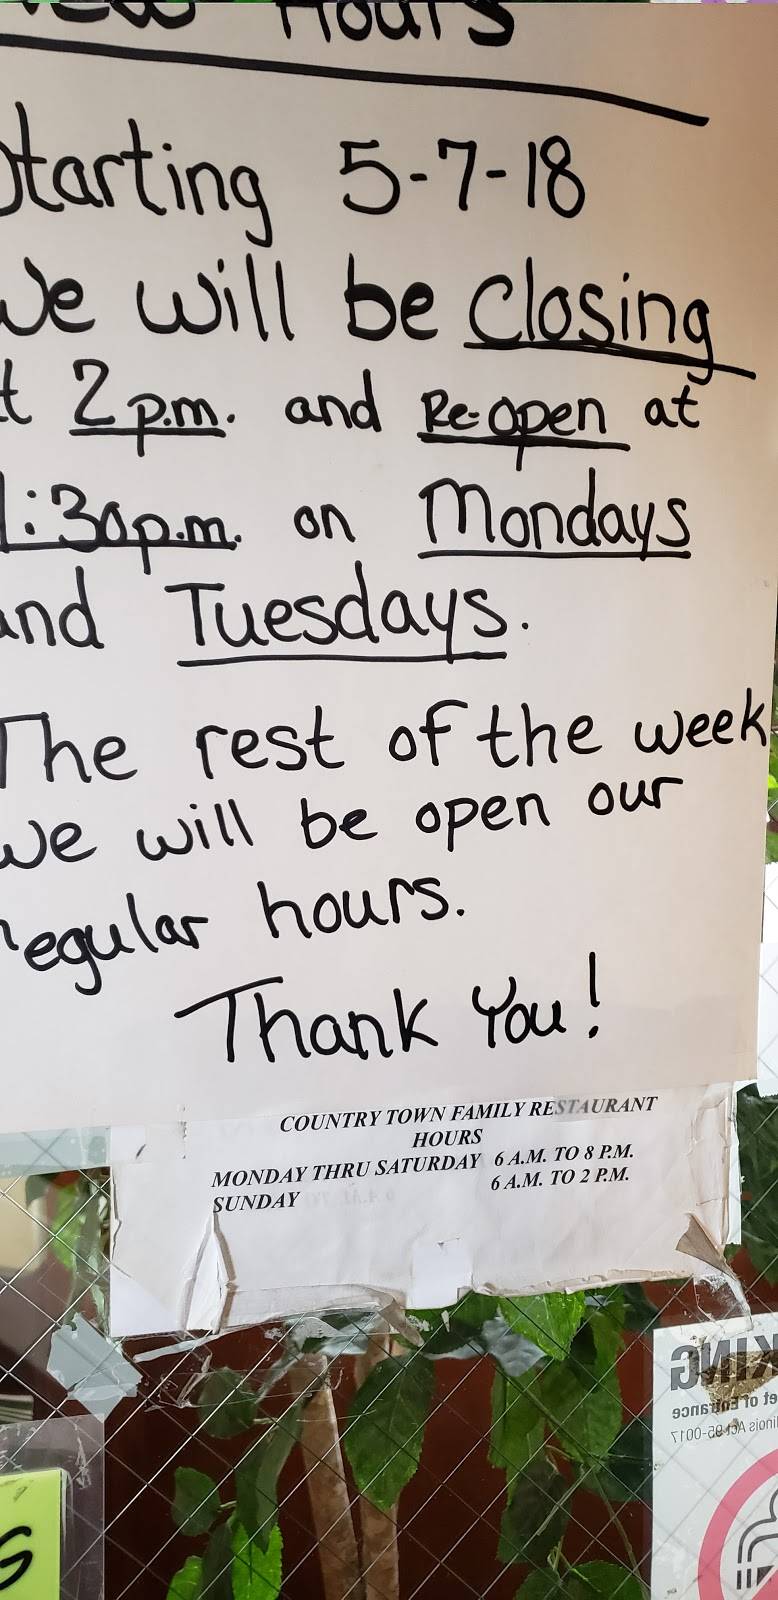 New Hours
Starting 5-7-18
We will be Closing
at 2 p.m. and Re-open at
:30 p.m. on Mondays
and Tuesdays.
The rest of the week
we will be open our
regular hours.
Thank You!
COUNTRY TOWN FAMILY RESTAURANT
HOURS
MONDAY THRU SATURDAY 6 A.M. TO 8 P.M.
SUNDAY 6 A.M. TO 2 P.M.
KING
et of Entrance
linois Act 95-0017